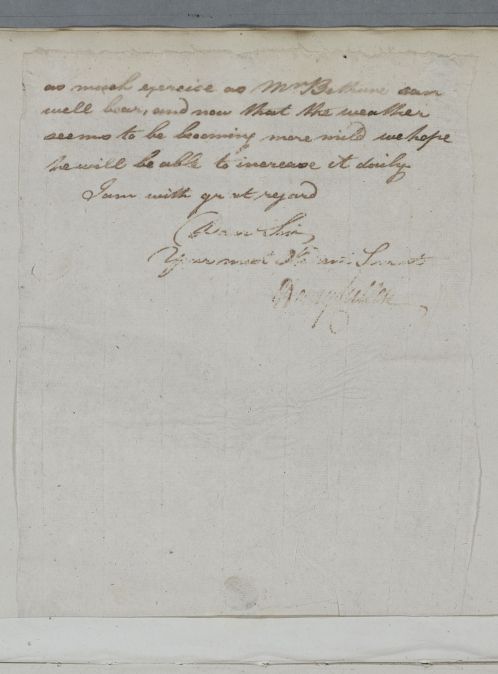 as much exercise as Mr Bethune can
well bear, and now that the weather
seems to be becoming more mild we hope
he will be able to increase it daily
I am with great regard
Dear Sir,
Your most